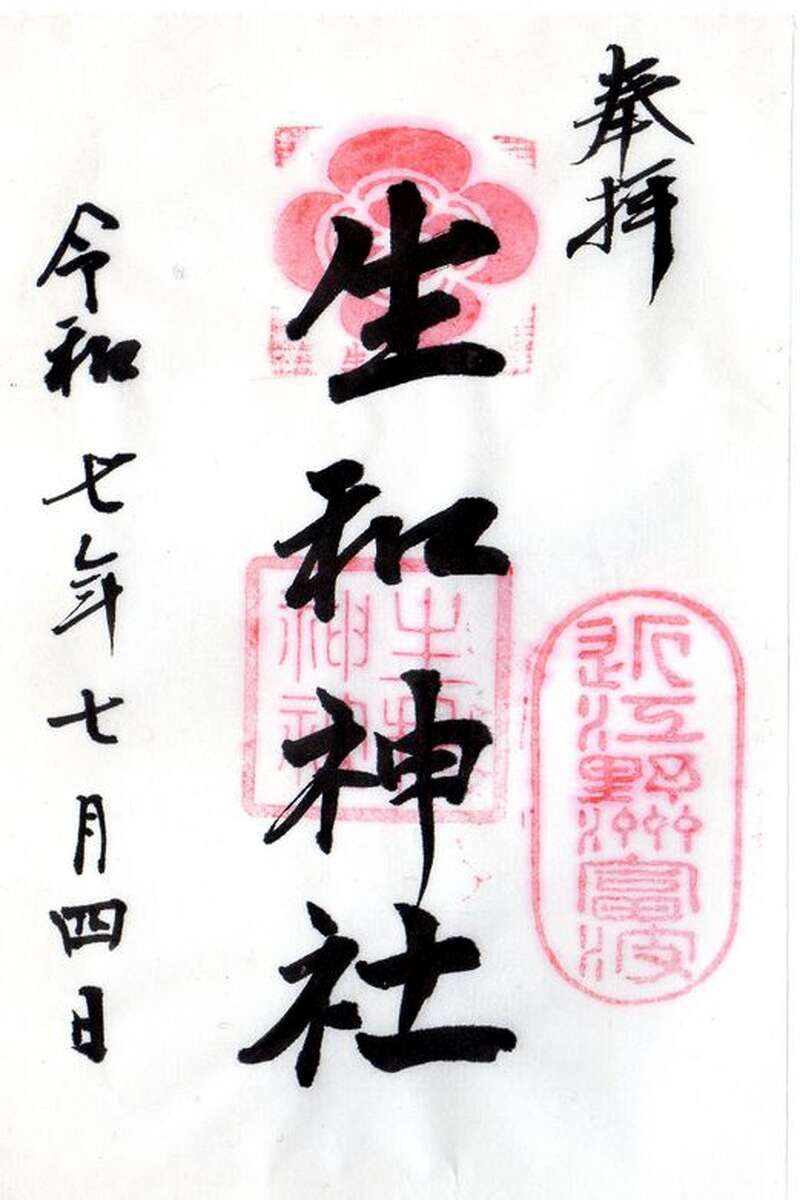 奉拝
近江野洲冨波
生和神社
生和神社
令和七年七月四日